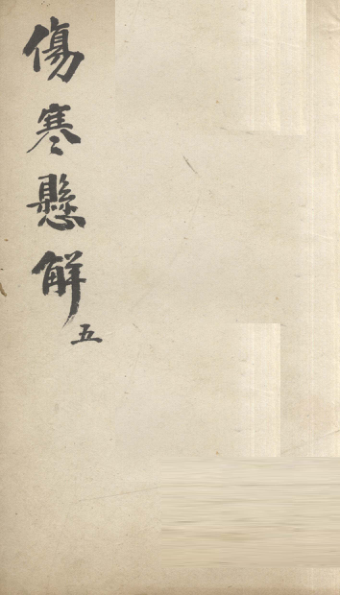 傷寒懸解
五